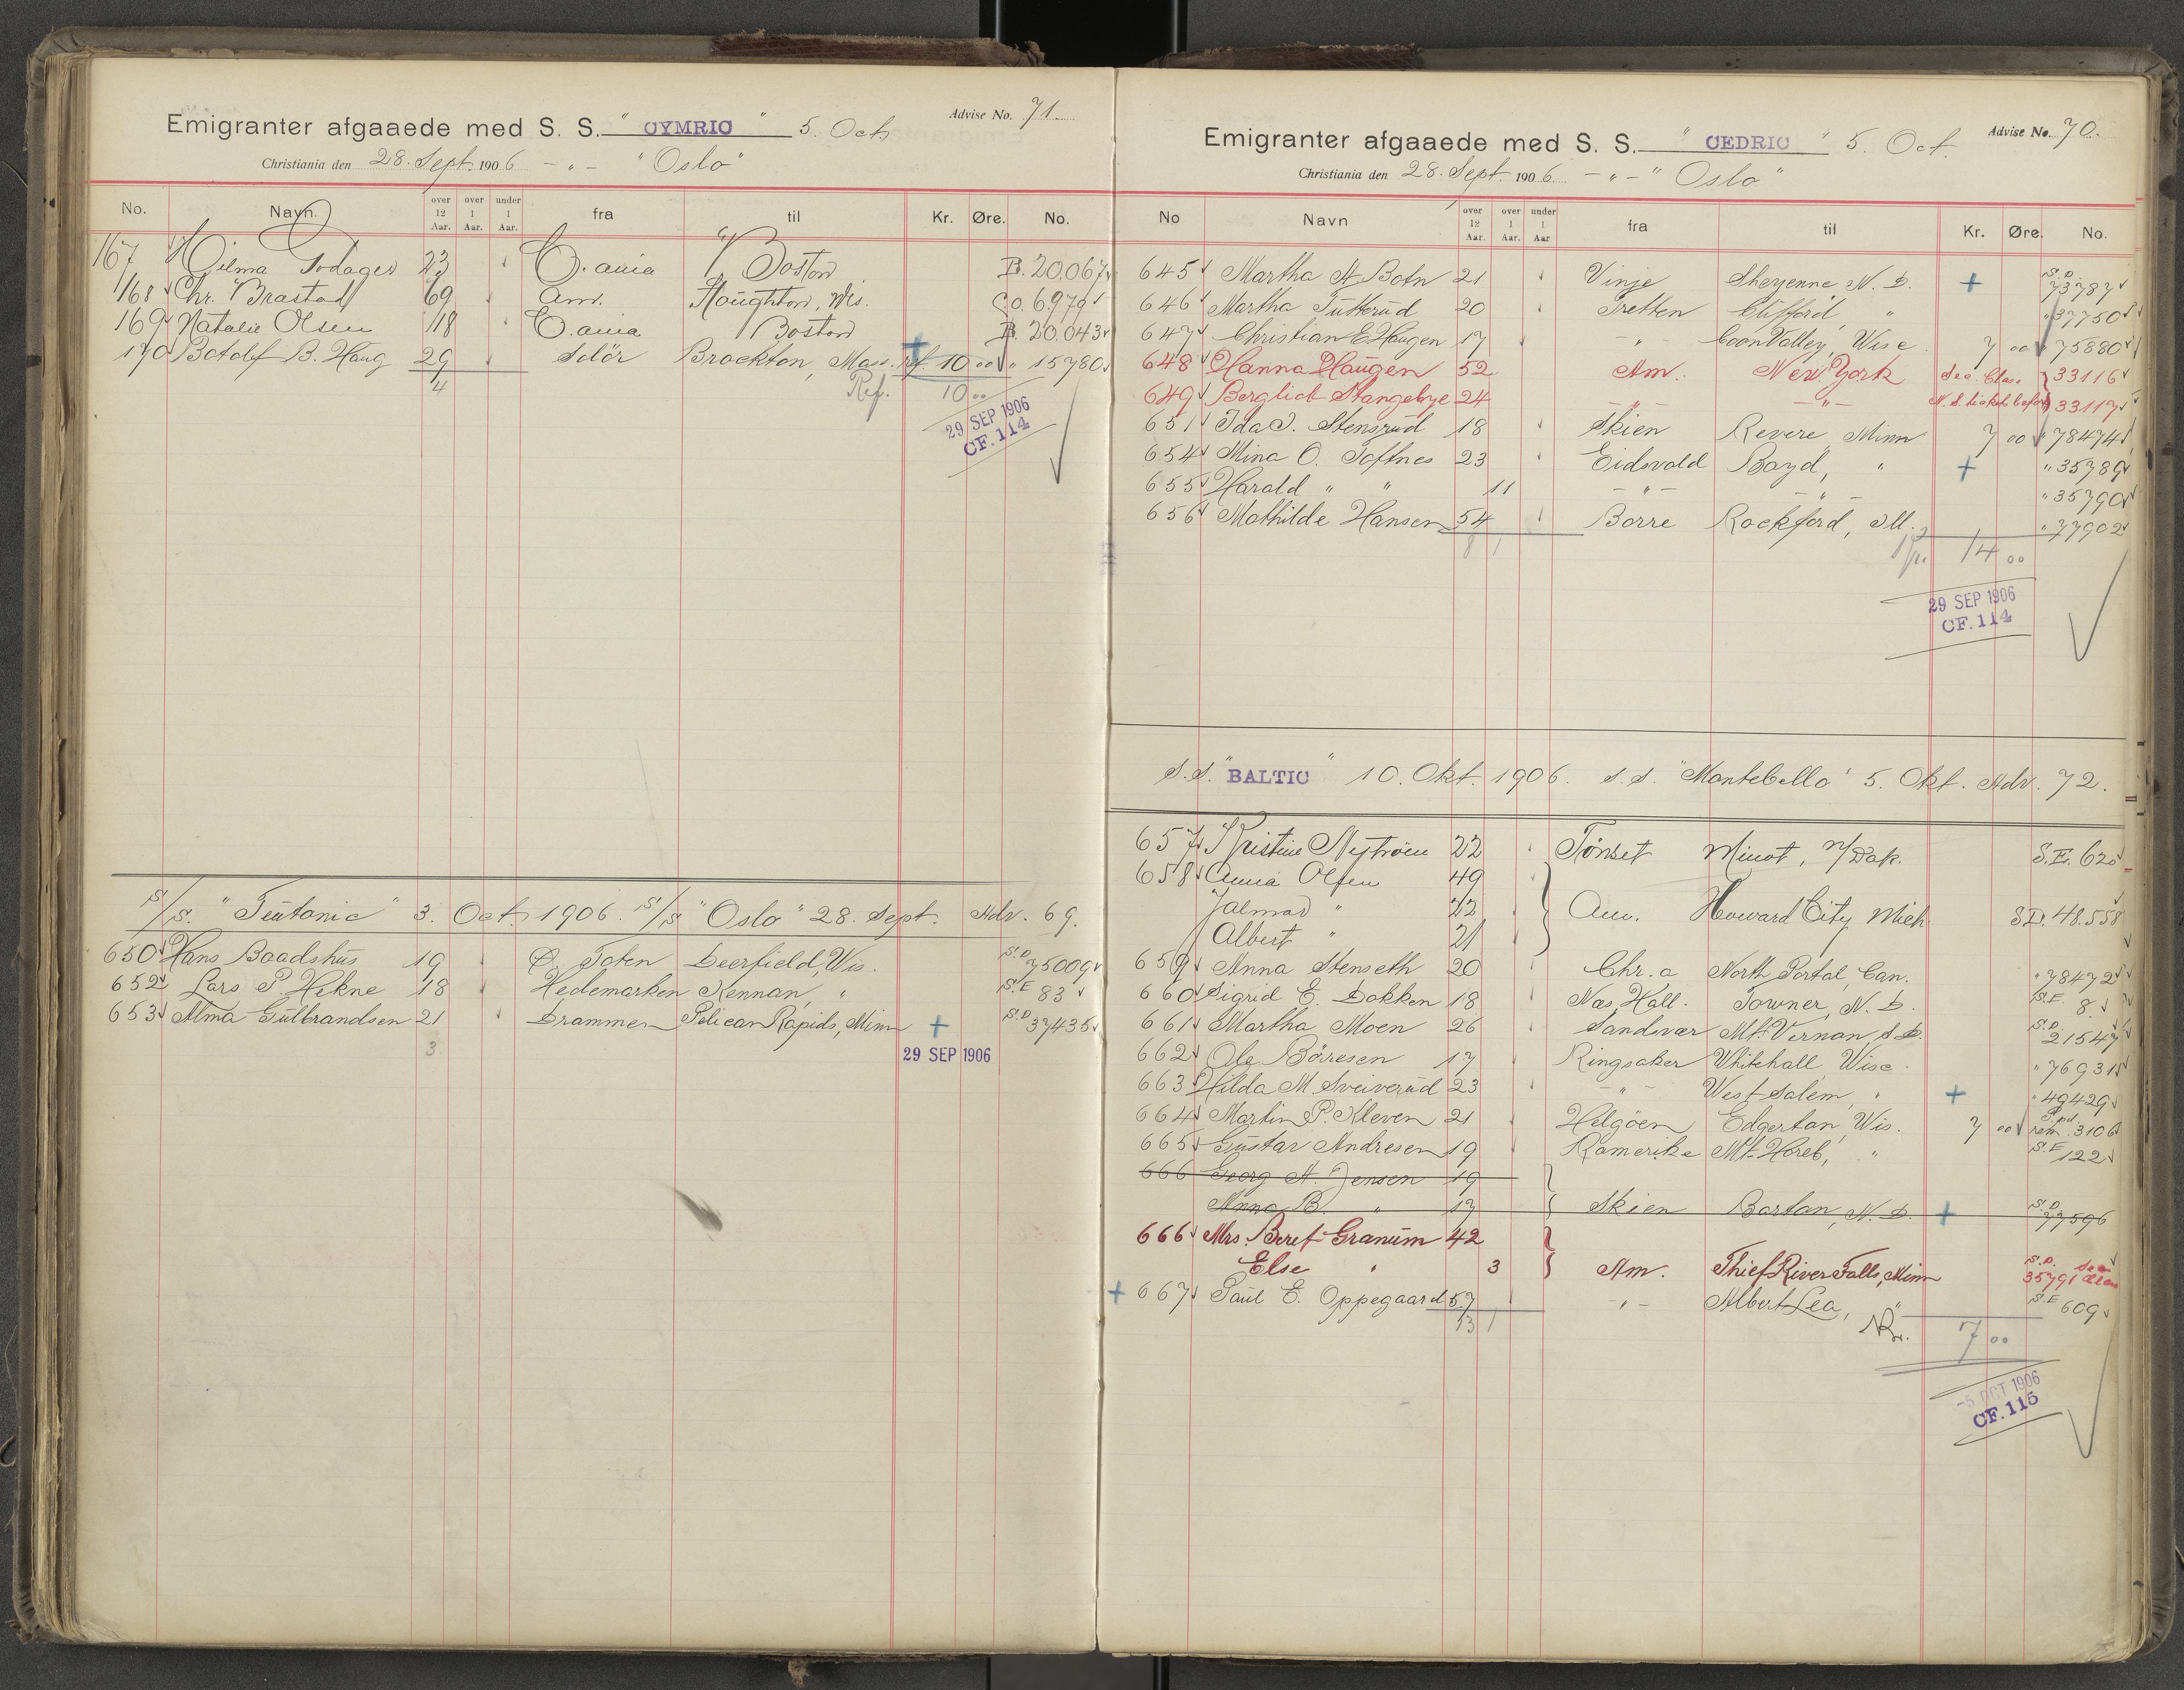 Advise No. 71
Emigranter afgaaede med S. S. " CYMRIC " 5. Oct
Christiania den 28. Sept. 1906 - " - " Oslo "
No. Navn. over 12 Aar. over 1 Aar. under 1 Aar. fra til Kr. Øre. No.
167 Hilma 23 C.ania Boston B. 20.067
168 Chr. Brastad 69 Am. Houghton, Wis. C.O. 6979
169 Natalie Olsen 18 C.ania Boston B. 20.043
170 Botolf B. Haug 29 Solör Brockton, Mass. rf. 10 00 " 15780
4 Ref. 10 00
29 SEP 1906
CF. 114
S/S. "Teutonic" 3. Oct. 1906. S/S "Oslo" 28. Sept. Adv. 69.
650 Hans Baadshus 19 Ø. Toten Deerfield, Wis. S.D. 75009
652 Lars P. Hekne 18 Hedemarken Kennan, " S.E 83
653 Alma Gulbrandsen 21 Drammen Pelican Rapids, Minn + S.D. 37435
3
29 SEP 1906
Advise No. 70.
Emigranter afgaaede med S. S. " CEDRIC " 5. Oct.
Christiania den 28. Sept. 1906 - " - " Oslo "
No Navn over 12 Aar. over 1 Aar. under 1 Aar fra til Kr. Øre. No.
645 Martha A. Botn 21 Vinje Sheyenne N. D. + S.D. 73787
646 Martha Tutterud 20 Tretten Clifford " " 37750
647 Christian E. Haugen 17 - " - Coon Valley, Wisc. 7 00 " 75880
648 Hanna Haugen 52 Am. New York Sec. Class 33116
649 Bergliot Stangebye 24 - " - - " - 33117
651 Ida J. Stensrud 18 Skien Revere Minn 7 00 " 78474
654 Mina O. Toftnes 23 Eidsvold Boyd, " + " 35789
655 Harald " " 11 - " - - " - " 35790
656 Mathilde Hansen 54 Borre Rockford, Ill. " 77902
8 1 14 00
29 SEP 1906
CF. 114
S.S. "BALTIC" 10. Okt. 1906. S.S. "Montebello" 5. Okt. Adv. 72.
657 Kristine Nytröen 22 Tönset Minot, N/Dak. S.E. 620
658 Anna Olsen 49
Jalmar " 22 Am. Howard City Mich. S.D. 48.558
Albert " 21
659 Anna Stenseth 20 Chr.a North Portal, Can. " 78472
660 Sigrid E. Dokken 18 Næs Hall. Towner, N. D. S.E. 8.
661 Martha Moen 26 Sandsvær Mt. Vernon, S. D. S.D. 21547
662 Ole Börresen 17 Ringsaker Whitehall, Wisc. " 76931
663 Hilda M. Sveiverud 23 - " - West Salem, " + " 49429
664 Martin P. Kleven 21 Helgöen Edgerton, Wis. 7 00 3106
665 Gustav Andresen 19 Romerike Mt. Horeb, " S.E 122
666 Georg A. Jensen 19
Anna B. " 17 Skien Barton, N. D. + S.D. 77596
666 Mrs. Beret Granum 42
Else " 3 Am. Thief River Falls, Minn S.D. 35791
+ 667 Paul E. Oppegaard 57 - " - Albert Lea, " S.E 609
13 1 7 00
-5 OCT 1906
CF. 115